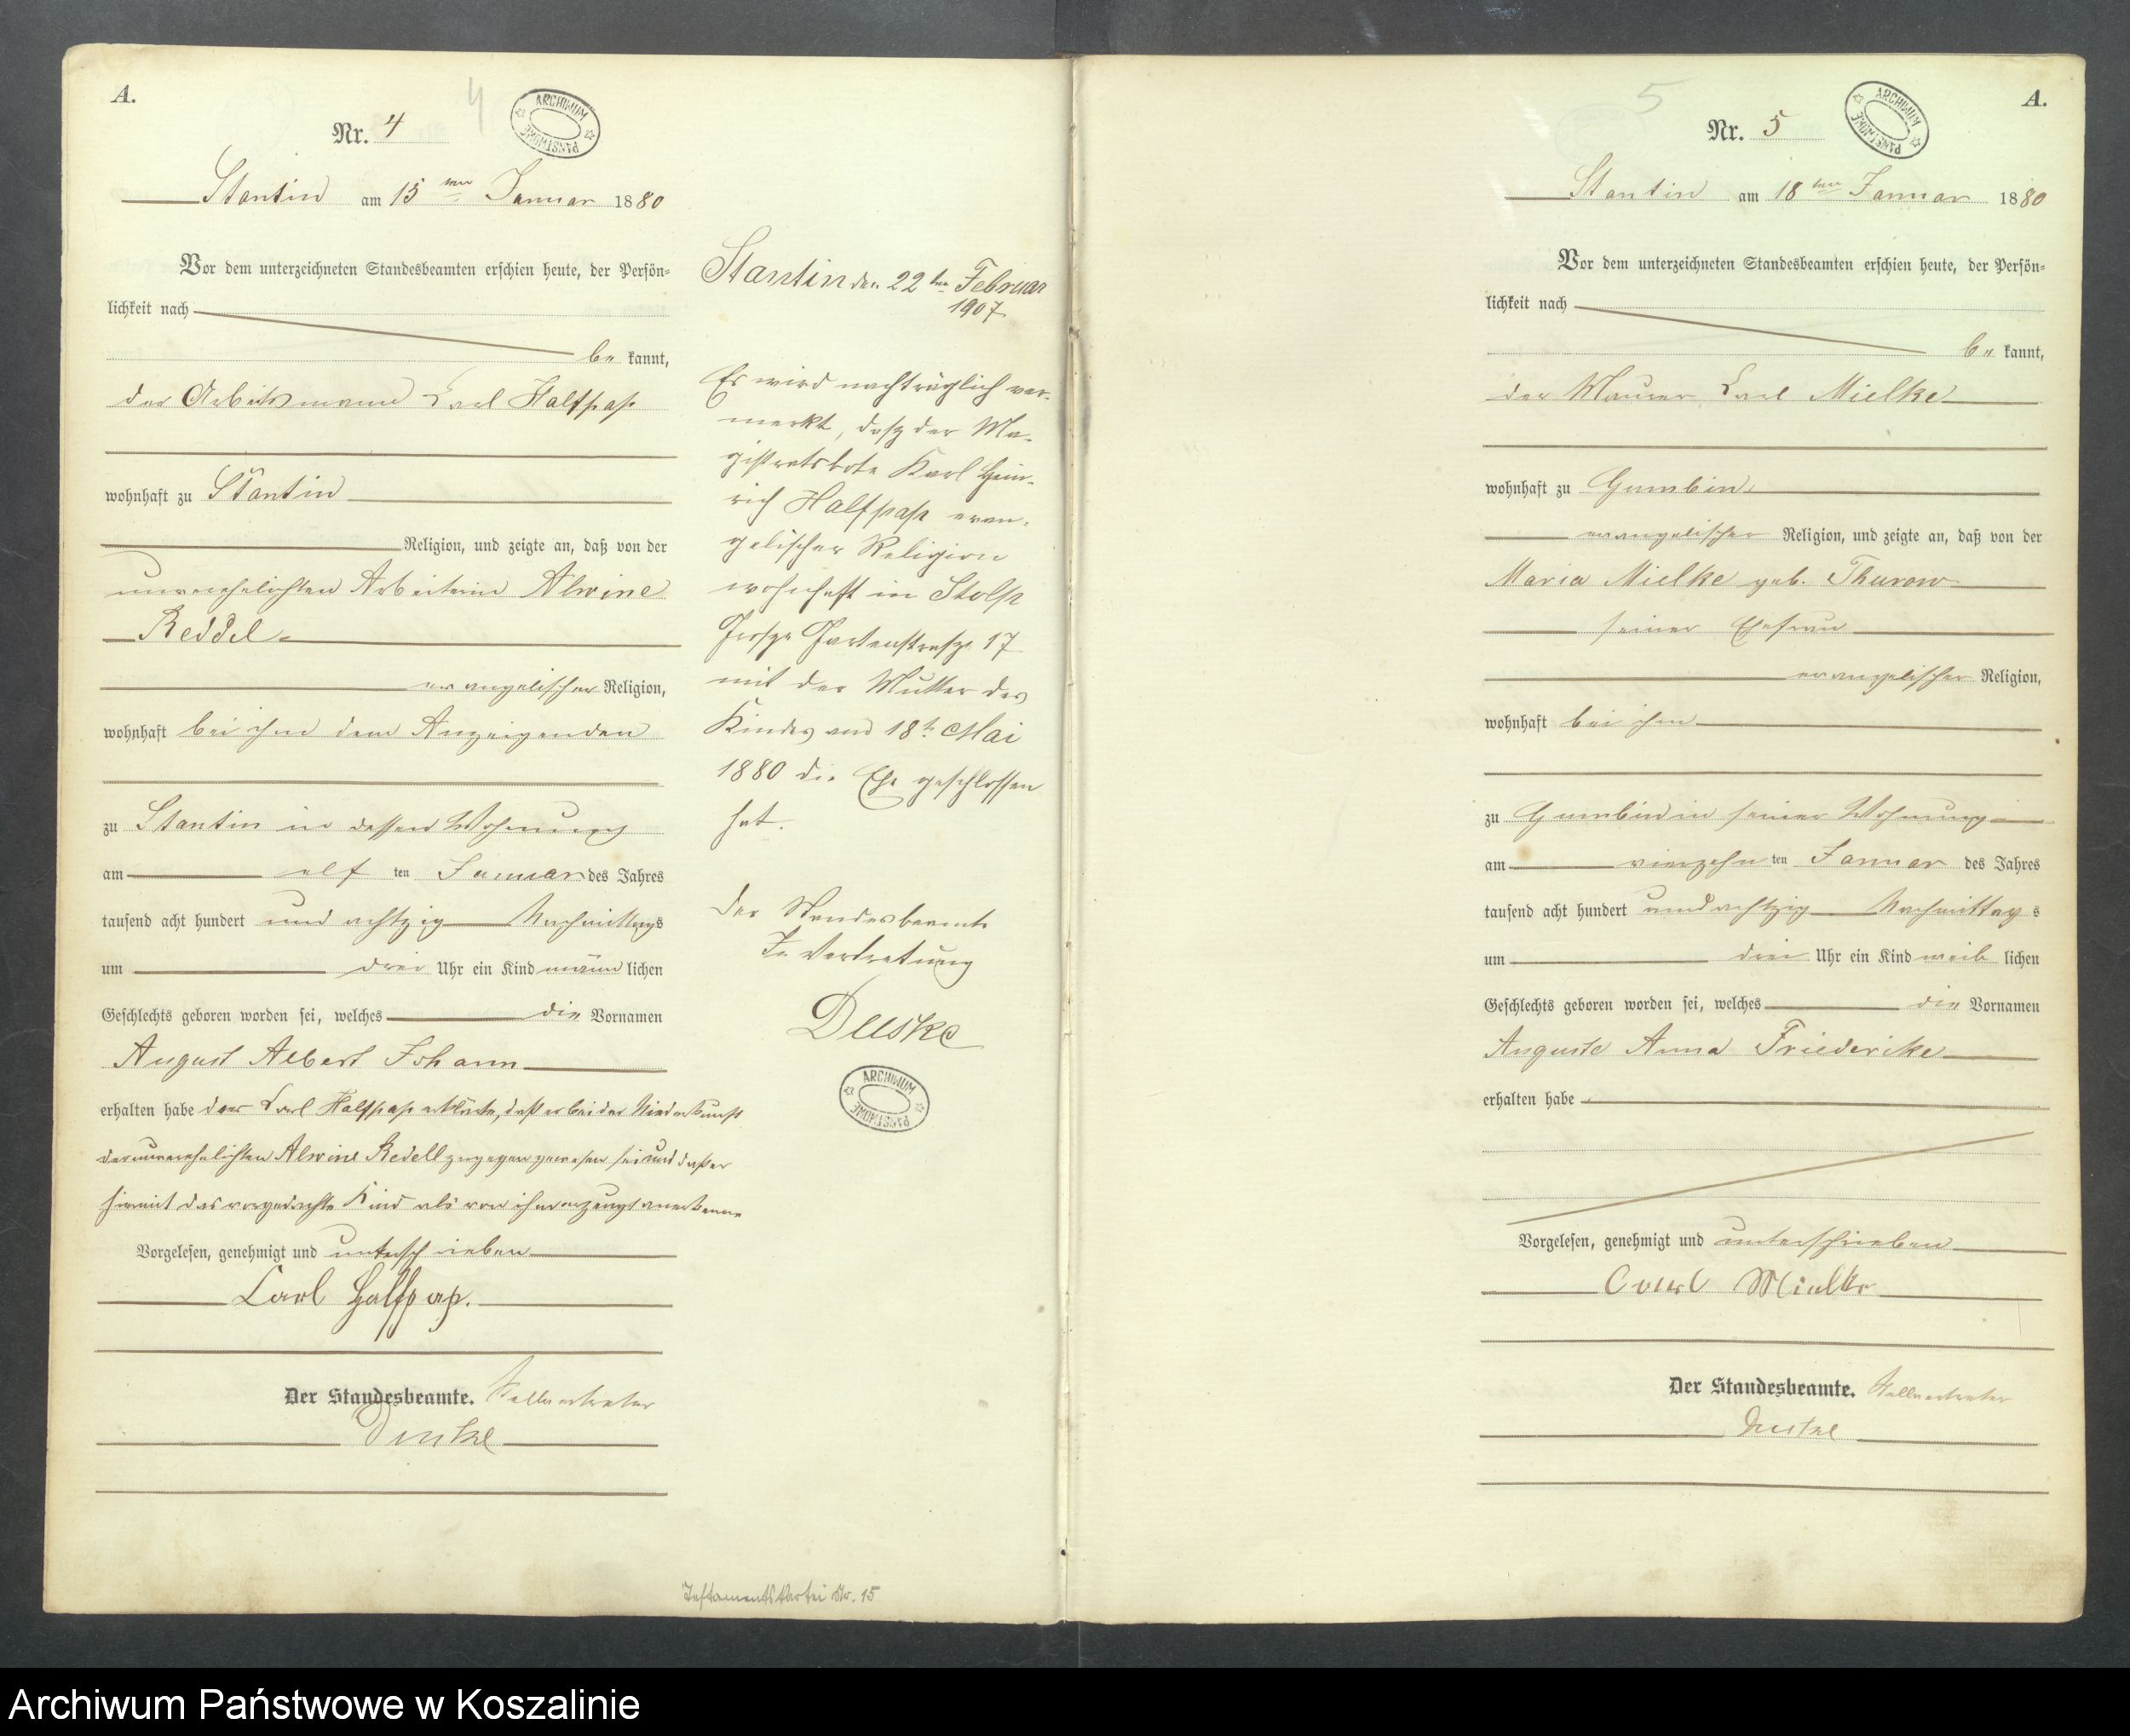 A.
Nr. 4
4
ARCHIWUM PAŃSTWOWE
Stantin am 15ten Januar 1880
Vor dem unterzeichneten Standesbeamten erschien heute, der Persön=
lichkeit nach
be kannt,
der Arbeitsmann Carl Halfpap
wohnhaft zu Stantin
Religion, und zeigte an, daß von der
unverehelichten Arbeiterin Alwine
Reddel
evangelischer Religion,
wohnhaft bei ihm dem Anzeigenden
zu Stantin in dessen Wohnung
am elf ten Januar des Jahres
tausend acht hundert und achtzig Nachmittags
um drei Uhr ein Kind männ lichen
Geschlechts geboren worden sei, welches die Vornamen
August Albert Johann
erhalten habe der Carl Halfpap erklärte, daß er bei der Niederkunft
der unverehelichten Alwine Redell zugegen gewesen sei und daß er
hiermit das vorgedachte Kind als von ihm erzeugt anerkenne
Vorgelesen, genehmigt und unterschrieben
Carl Halfpap.
Der Standesbeamte. Stellvertreter
Stantin den 22ten Februar
1907
Es wird nachträglich ver-
merkt, daß der Ma-
gistratsbote Karl Hein-
rich Halfpap evan-
gelischer Religion
wohnhaft in Stolp
Große Gartenstraße 17
mit der Mutter des
Kindes am 18t Mai
1880 die Ehe geschlossen
hat.
Der Standesbeamte
In Vertretung
ARCHIWUM PAŃSTWOWE
Testamentskartei Nr. 15
A.
5
Nr. 5
ARCHIWUM PAŃSTWOWE
Stantin am 18ten Januar 1880
Vor dem unterzeichneten Standesbeamten erschien heute, der Persön=
lichkeit nach
be kannt,
der Maurer Carl Mielke
wohnhaft zu Gumbin
evangelischer Religion, und zeigte an, daß von der
Maria Mielke geb. Thurow
seiner Ehefrau
evangelischer Religion,
wohnhaft bei ihm
zu Gumbin in seiner Wohnung
am vierzehn ten Januar des Jahres
tausend acht hundert und achtzig Nachmittag s
um drei Uhr ein Kind weib lichen
Geschlechts geboren worden sei, welches die Vornamen
Auguste Anna Friederike
erhalten habe
Vorgelesen, genehmigt und unterschrieben
Carl Mielke
Der Standesbeamte. Stellvertreter
Archiwum Państwowe w Koszalinie